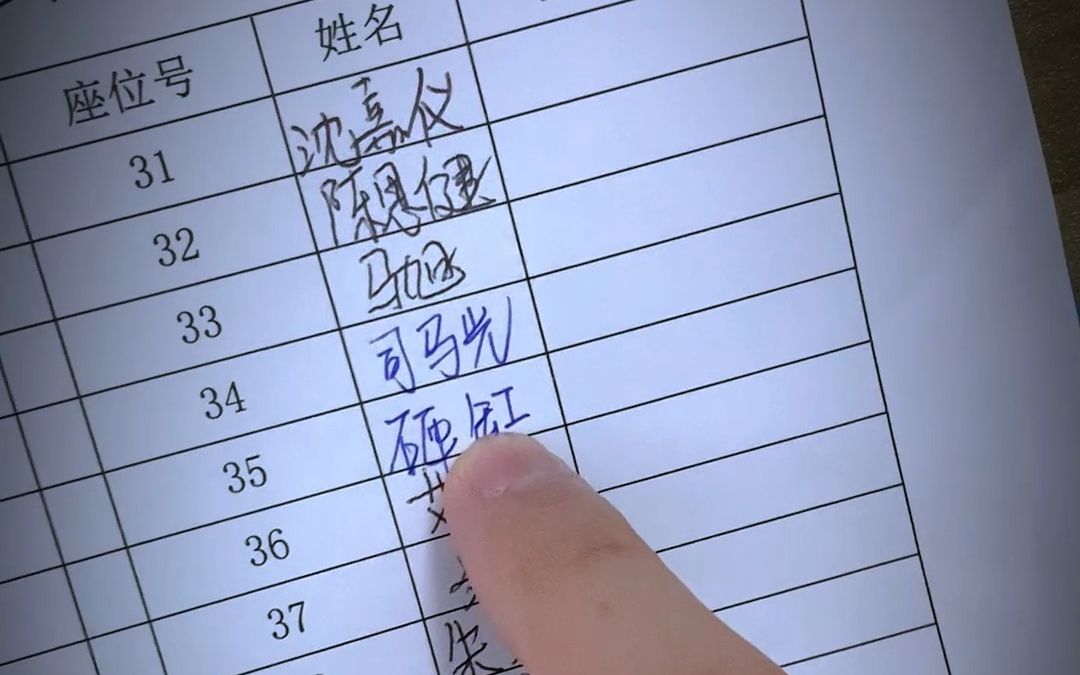 座位号 姓名
31 沈嘉仪
32 陈思健
33 马旭
34 司马光
35 砸缸
36
37
朱